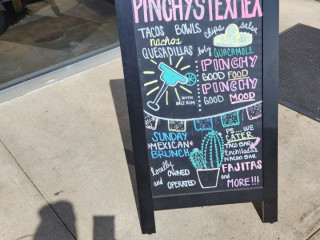 PINCHYSTEXMEX
TACOS BOWLS
nachos
chips Salsa
QUESADILLAS
GUACAMOLE
PINCHY
GOOD FOOD
PINCHY
GOOD MOOD
SUNDAY
MEXICAN
BRUNCH
Locally
OWNED
and OPERATED
PS... WE
CATER
TACO BAR
Enchiladas
NACHO BAR
FAJITAS
and
MORE!!!